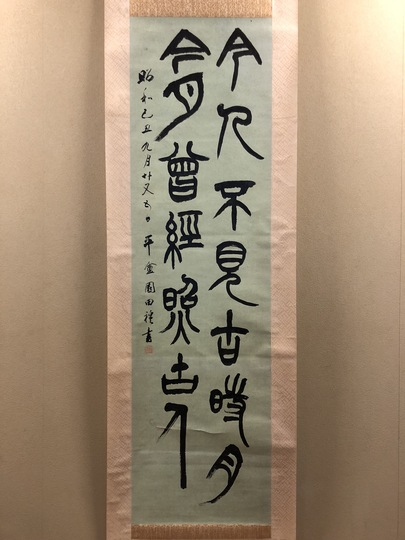 今人不見古時月
今月曾經照古人
昭和己丑九月廿又五日 平盦園田禮書